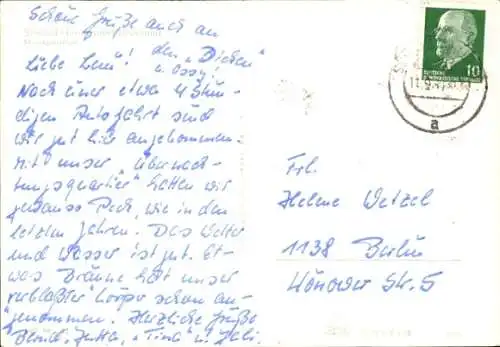 Schöne Grüße auch an
den „Dicken"
u. Ossy!
Liebe Leni!
Nach einer etwa 4 stün-
digen Autofahrt sind
wir gut hier angekommen.
Mit unser „Übernach-
tungsquartier" hatten wir
genauso Pech, wie in den
letzten Jahren. Das Wetter
und Wasser ist gut. Et-
was Bräune hat unser
verblaßter Körper schon an-
genommen. Herzliche Grüße
Bernd, Jutta, „Tina" u.
10
DEUTSCHE
DEMOKRATISCHE REPUBLIK
a
Frl.
Helene Wetzel
1138 Berlin
Hönower Str. 5